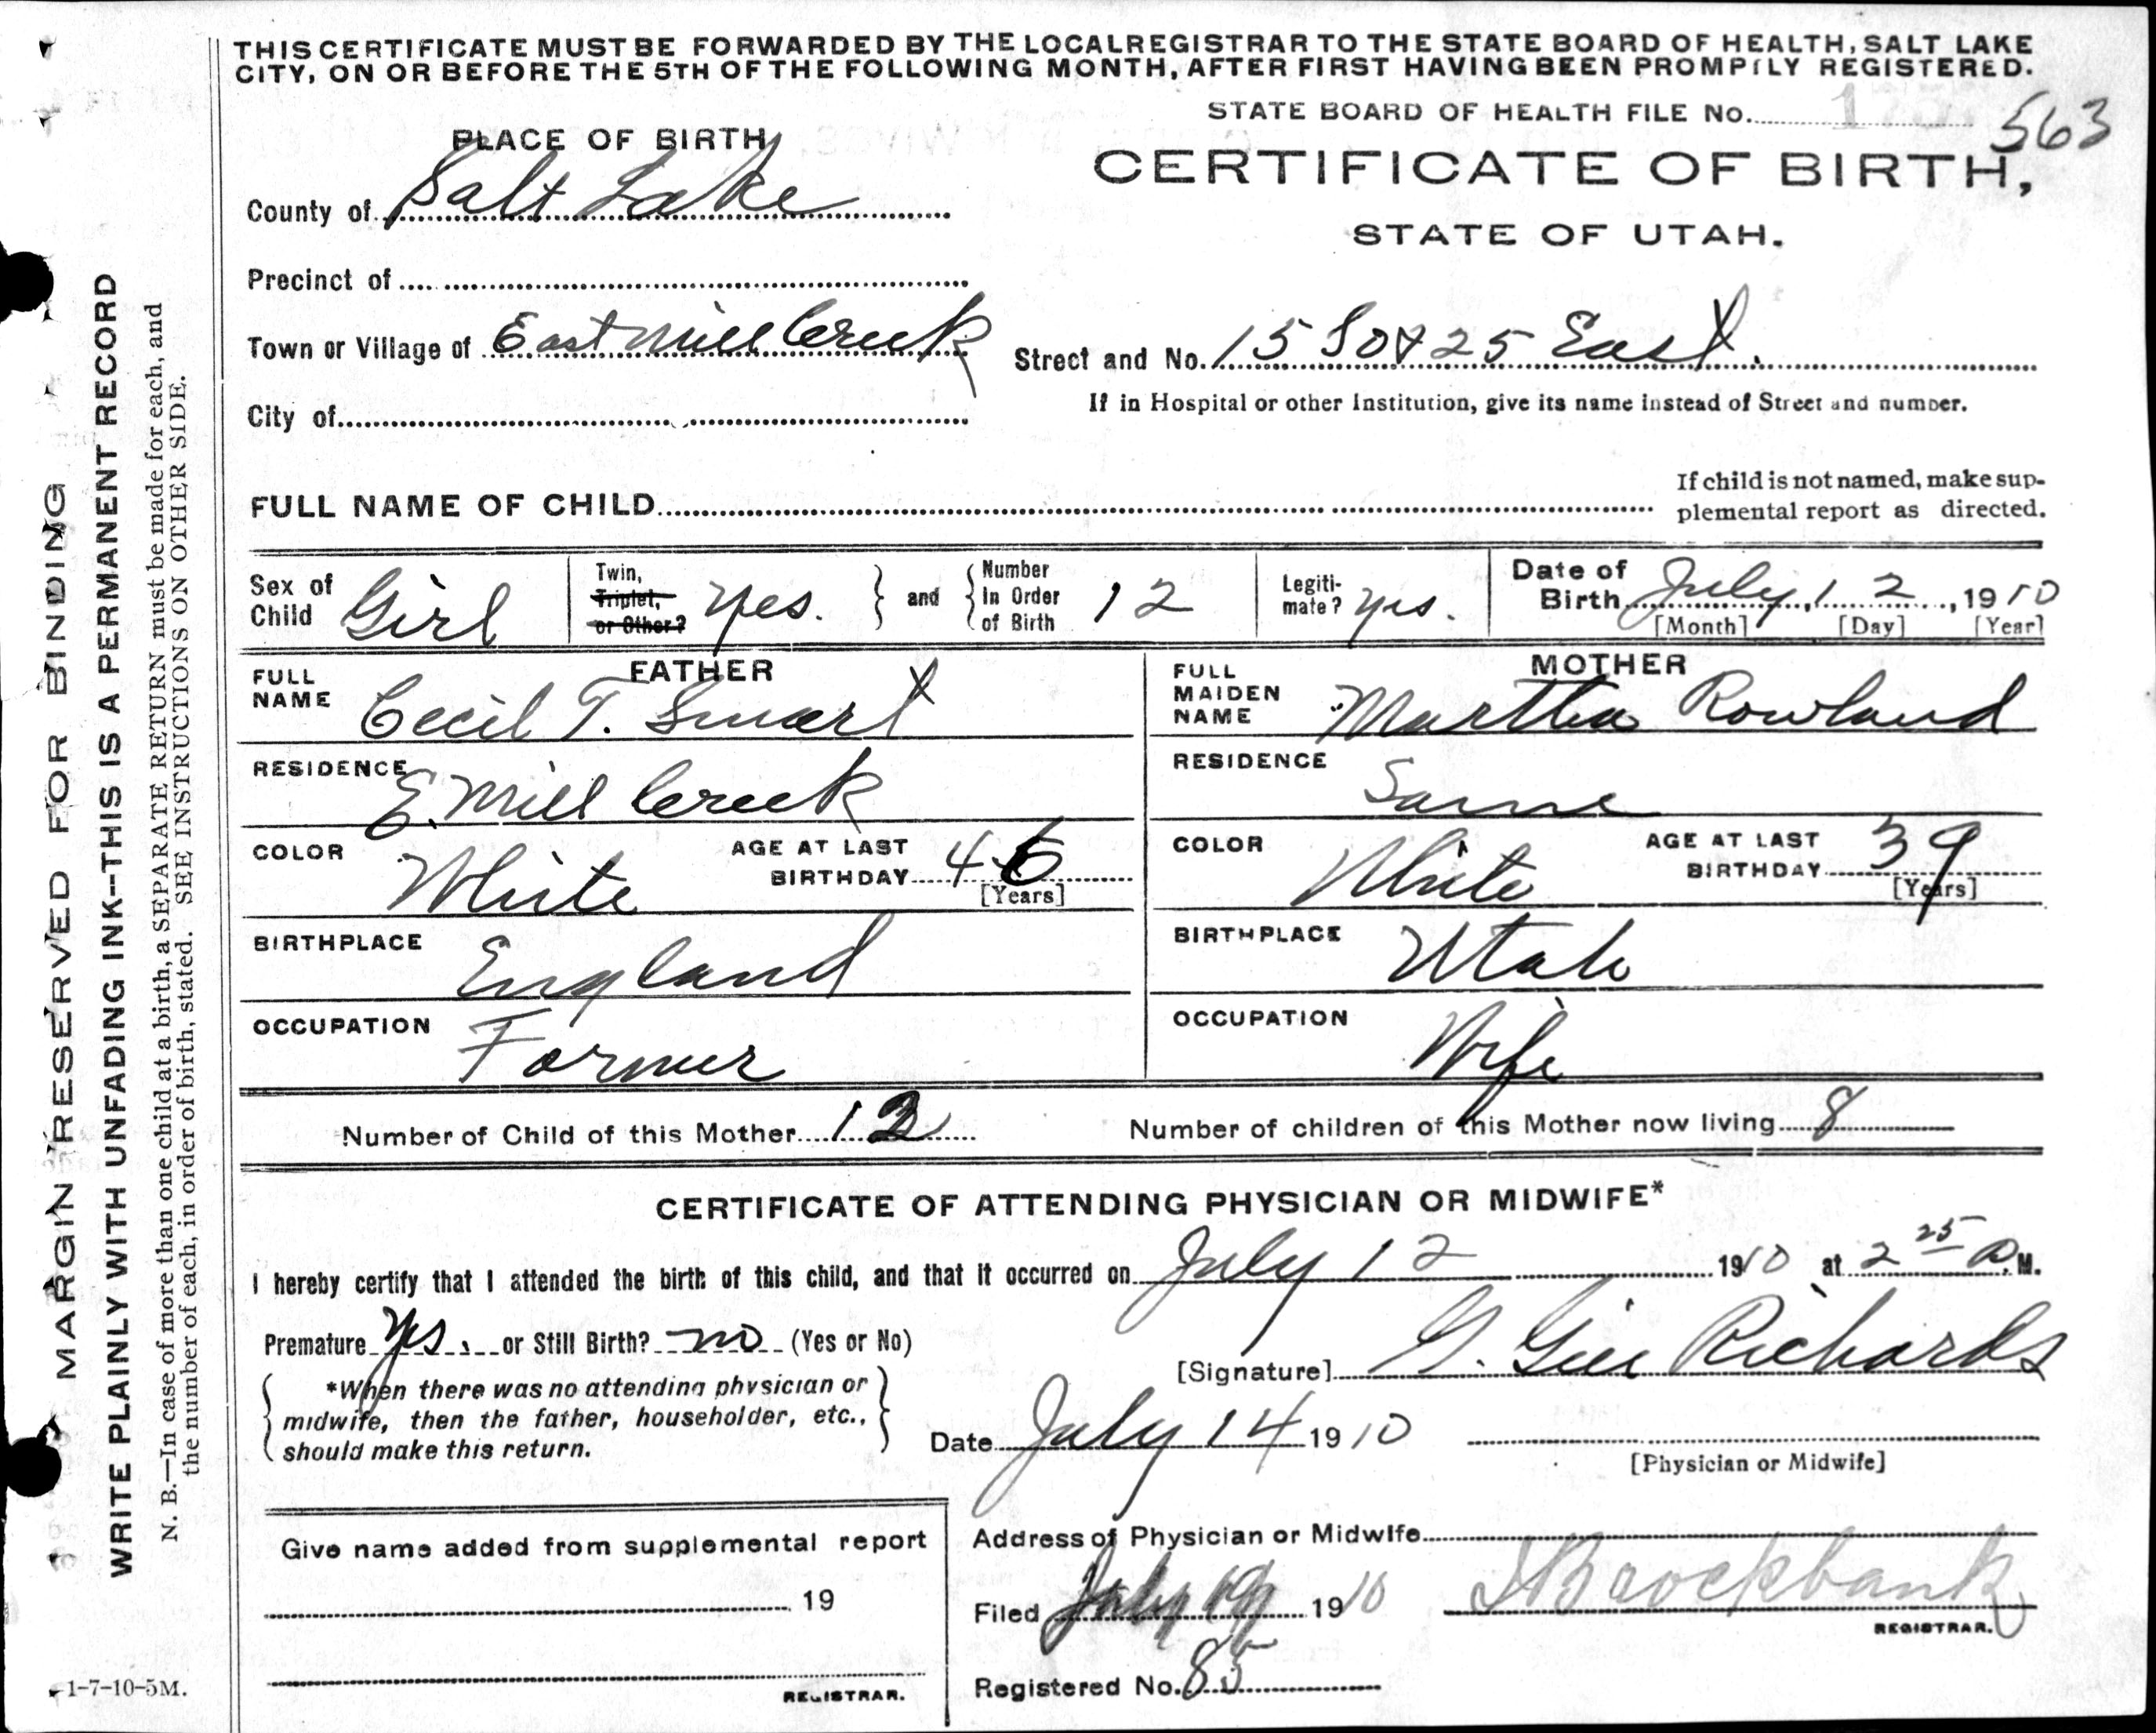 THIS CERTIFICATE MUST BE FORWARDED BY THE LOCAL REGISTRAR TO THE STATE BOARD OF HEALTH, SALT LAKE
CITY, ON OR BEFORE THE 5TH OF THE FOLLOWING MONTH, AFTER FIRST HAVING BEEN PROMPTLY REGISTERED.
STATE BOARD OF HEALTH FILE No. 563
PLACE OF BIRTH
CERTIFICATE OF BIRTH,
STATE OF UTAH.
County of Salt Lake
Precinct of
Town or Village of East Mill Creek
Street and No. 15 So & 25 East.
City of
If in Hospital or other Institution, give its name instead of Street and number.
FULL NAME OF CHILD
If child is not named, make sup-
plemental report as directed.
Sex of Child Girl
Twin, Triplet, or Other? Yes.
and
Number In Order of Birth 12
Legiti-
mate? Yes.
Date of Birth July 12, 1910
[Month] [Day] [Year]
FATHER
FULL NAME Cecil T. Smart
RESIDENCE E. Mill Creek
COLOR White
AGE AT LAST BIRTHDAY 46
[Years]
BIRTHPLACE England
OCCUPATION Farmer
MOTHER
FULL MAIDEN NAME Martha Rowland
RESIDENCE Same
COLOR White
AGE AT LAST BIRTHDAY 39
[Years]
BIRTHPLACE Utah
OCCUPATION Wife
Number of Child of this Mother 12
Number of children of this Mother now living 8
CERTIFICATE OF ATTENDING PHYSICIAN OR MIDWIFE*
I hereby certify that I attended the birth of this child, and that it occurred on July 12 1910 at 2 25 P.M.
Premature Yes. or Still Birth? no (Yes or No)
[Signature] G. Gill Richards
*When there was no attending physician or
midwife, then the father, householder, etc.,
should make this return.
Date July 14 1910
[Physician or Midwife]
Give name added from supplemental report
19
REGISTRAR.
Address of Physician or Midwife
Filed July 19 1910 Brockbank
REGISTRAR.
Registered No. 85
MARGIN RESERVED FOR BINDING
WRITE PLAINLY WITH UNFADING INK--THIS IS A PERMANENT RECORD
N. B.—In case of more than one child at a birth, a SEPARATE RETURN must be made for each, and
the number of each, in order of birth, stated. SEE INSTRUCTIONS ON OTHER SIDE.
1-7-10-5M.